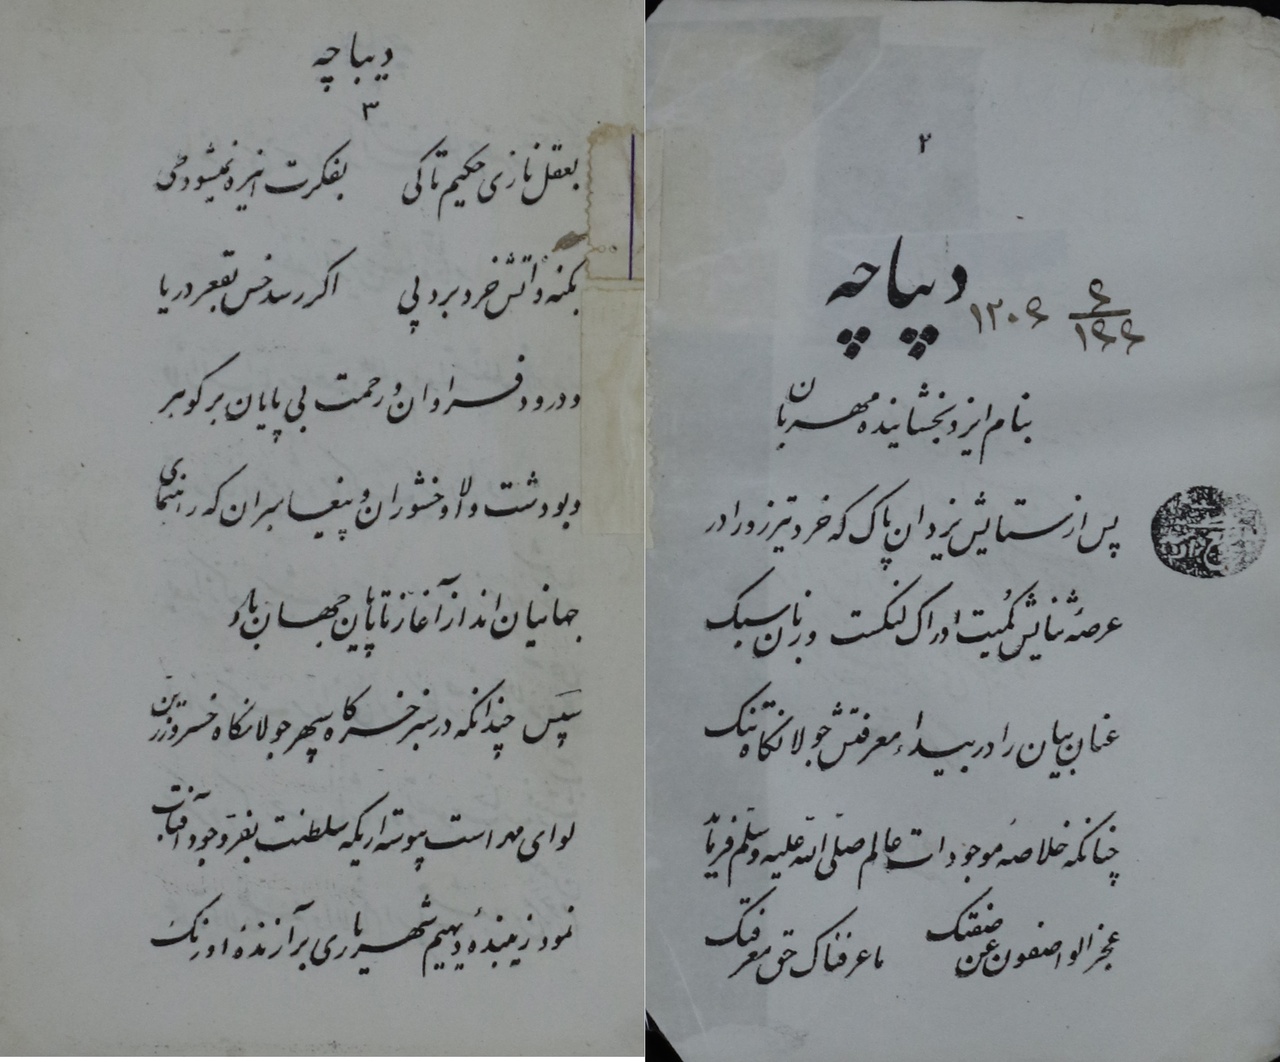 ۲
دیباچه
۱۲۰۶ ۶/۱۶۶
بنام ایزد بخشاینده مهربان
پس از ستایش یزدان پاک که خرد تیزرو را در
عرصهٔ ثنایش کمیت ادراک لنکست و زبان سبک
عنان بیان را در بیداء معرفتش جولانکاه تنک
چنانکه خلاصهٔ موجودات عالم صلّی الله علیه وسلّم فرماید
عجز الواصفون عن صفتک ما عرفناک حق معرفتک
دیباچه
۳
بعقل نازی حکیم تا کی بفکرت این ره نمیشود طی
بکنه ذاتش خرد برد پی اکر رسد خس بقعر دریا
و درود فراوان و رحمت بی پایان بر کوهر
و بود وشت والا وخشوران و پیغامبران که راهنمای
جهانیان اند از آغاز تا پایان جهان باد
سپس چندانکه در سبز خرکاه سپهر جولانکاه خسرو زرین
لوای مهر است پیوسته اریکه سلطنت بفر وجود آفتاب
نمود زیبندهٔ دیهیم شهریاری برازندهٔ اورنک